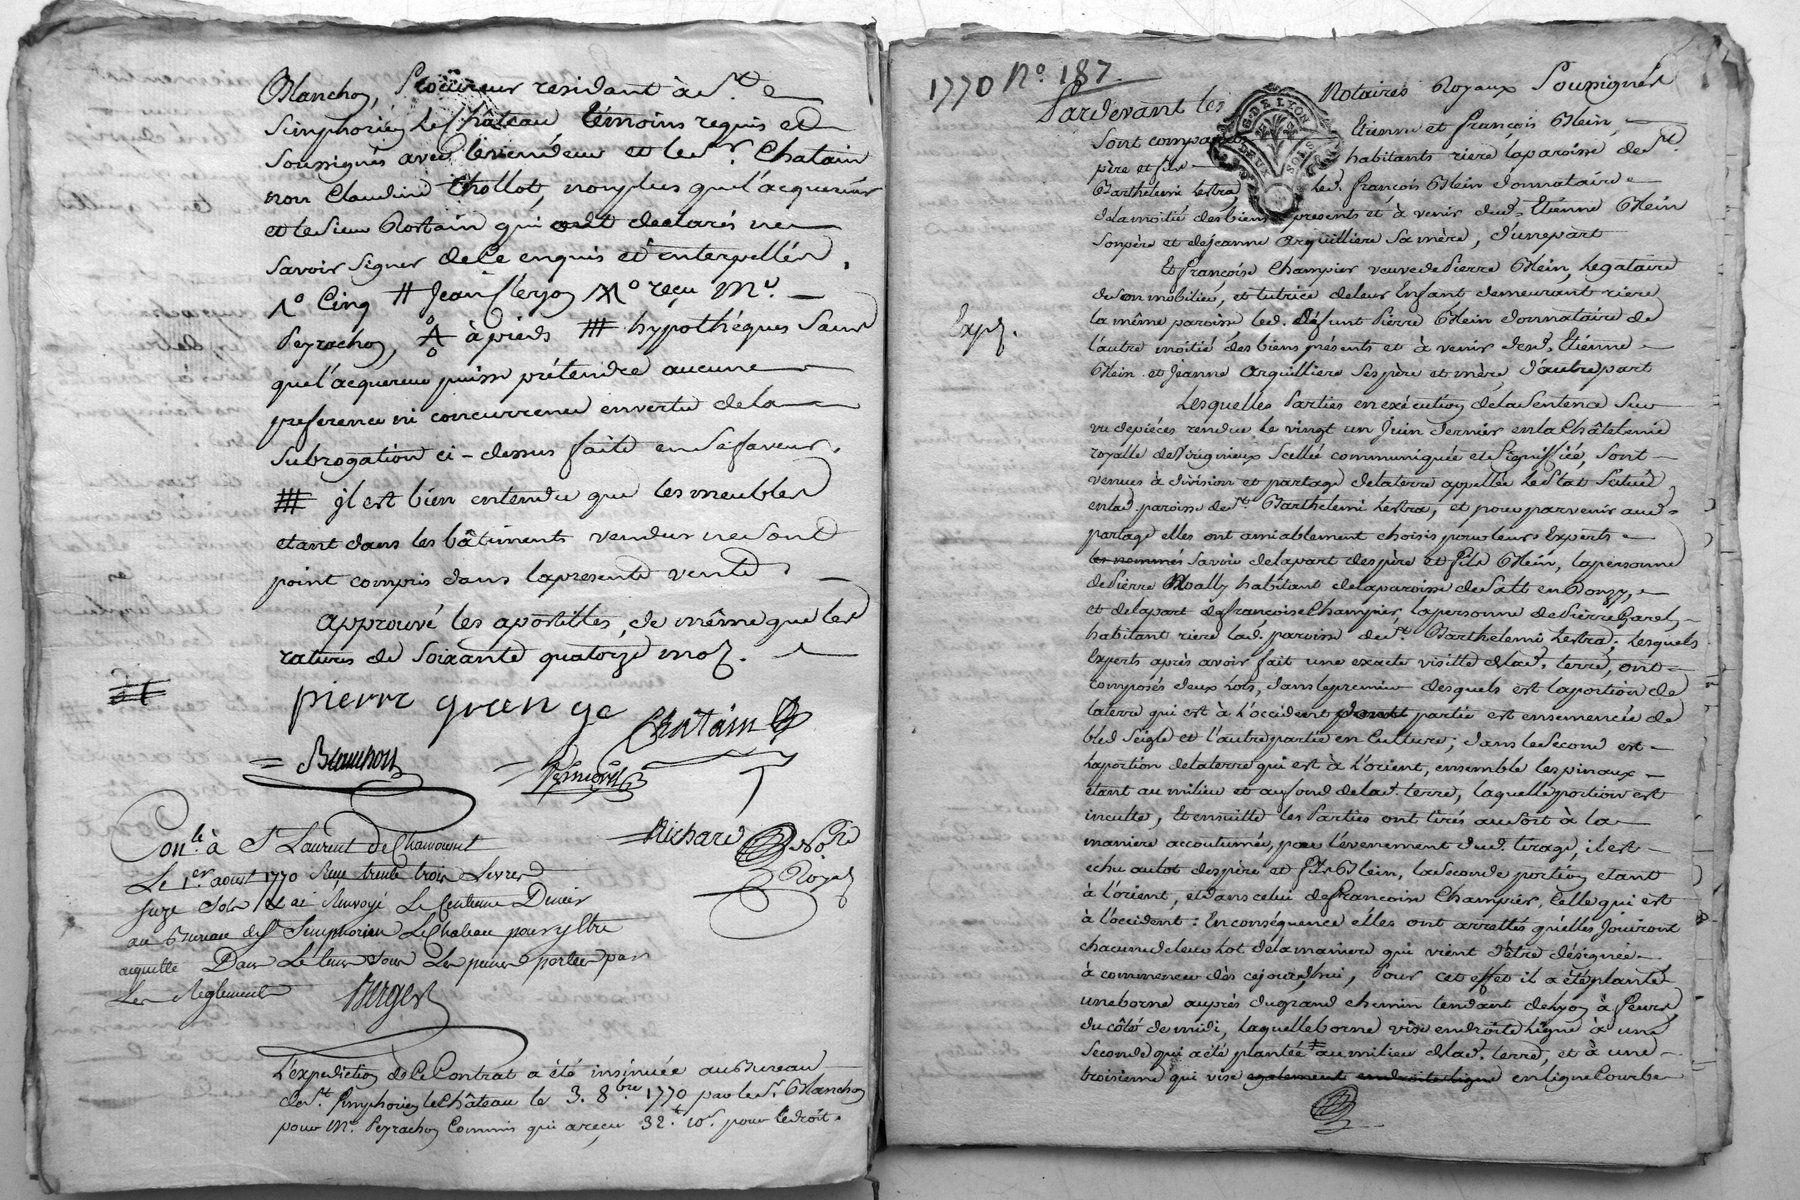 Blanchon, Procureur residant à St.
Simphorien Le Château témoins requis et
Soussignés avec le vendeur et led. Sr. Chatain
non Claudine Chollot, non plus que l'acquereur
et le Sieur Rostain qui ont declarés ne
savoir signer de ce enquis et interpellés.
1o Cinq # Jean Clerjon No reçu Mr.
Peyrachon, A à pieds # hypothéques Sans
que l'acquereur puisse prétendre aucune
preference ni concurrence en vertu de la
Subrogation ci-dessus faite en sa faveur.
# il est bien entendu que les meubles
étant dans les bâtiments vendus ne sont
point compris dans la presente vente.
Approuvé les apostilles, de même que les
ratures de Soixante quatorze mots.
#
pierre grange
Chatain
Blanchon
Richard Nore
Royal
Conlé. à St Laurent de Chamousset
Le 1er. aoust 1770 Reçu trente trois Livres
Seize Sols et ai Renvoyé Le Centieme Denier
au Bureau de St Simphorien Le Chateau pour y Etre
acquitté Dans Le tems Sous Les peines portées par
Les Reglements Berger
L'expedition de Ce Contrat a été insinuée au Bureau
de St. Simphorien le Château le 3. 8bre 1770 par le Sr. Blanchon
pour Mr. Peyrachon Commis qui a reçu 32 10s pour le droit.
1770 No. 187.
Pardevant les Notaires Royaux Soussignés
Sont comparus Etienne et François Blein,
père et fils habitants riere la paroisse de St.
Barthelemi Lestra, led. François Blein donnataire
de la moitié des biens presents et à venir dud. Etienne Blein
son père et de Jeanne Arquilliere Sa mère, d'une part
Et Françoise Champier veuve de Pierre Blein, Legataire
de son mobilier, et tutrice de leur Enfant demeurant riere
la même paroisse led. Défunt Pierre Blein donnataire de
Expé.
l'autre moitié des biens présents et à venir desd. Etienne
Blein et Jeanne Arquilliere Ses père et mère, d'autre part
Lesquelles Parties en exécution de la Sentence Sur
vu de piéces rendue Le vingt un Juin dernier en la Châtelenie
royalle de Virignieux Scellée communiquée et Signiffiée, Sont
venues à division et partage de la terre appellée Le Plat Scituée
en lad. paroisse de St. Barthelemi Lestra, et pour parvenir aud.
partage elles ont amiablement choisis pour leurs Experts
les nommés Savoir de la part des père et fils Blein, la personne
de Pierre Bally habitant de la paroisse de Salt en Donzy,
et de la part de Françoise Champier, la personne de Pierre Garel,
habitant riere lad. paroisse de St. Barthelemi Lestra; Lesquels
Experts après avoir fait une exacte visitte de lad. terre, ont
composés deux Lots, dans le premier desquels est la portion de
la terre qui est à l'occident dont partie est ensemencée de
bled Seigle et l'autre partie en Culture; dans le Second est
La portion de la terre qui est à l'orient, ensemble les pinaux
étant au milieu et au fond de lad. terre, laquelle portion est
inculte, Et ensuitte les Parties ont tirés au Sort à la
maniere accoutumée, par l'évenement dud. tirage, il est
echu au lot des père et fils Blein, la Seconde portion étant
à l'orient, et dans celui de Francoise Champier, Celle qui est
à l'occident: En conséquence elles ont arrettés qu'elles Jouiront
chacune de leur Lot de la maniere qui vient d'être désignée
à commencer dès cejourd'hui, Pour cet effet il a été planté
une borne auprès du grand chemin tendant de Lyon à Feurs,
du côté de midi, laquelle borne vise en droite Ligne à une
Seconde qui a été plantée # au milieu de lad. terre, et à une
troisieme qui vise egalement en droite ligne en ligne Courbe
G. DE LYON
DEUX SOLS